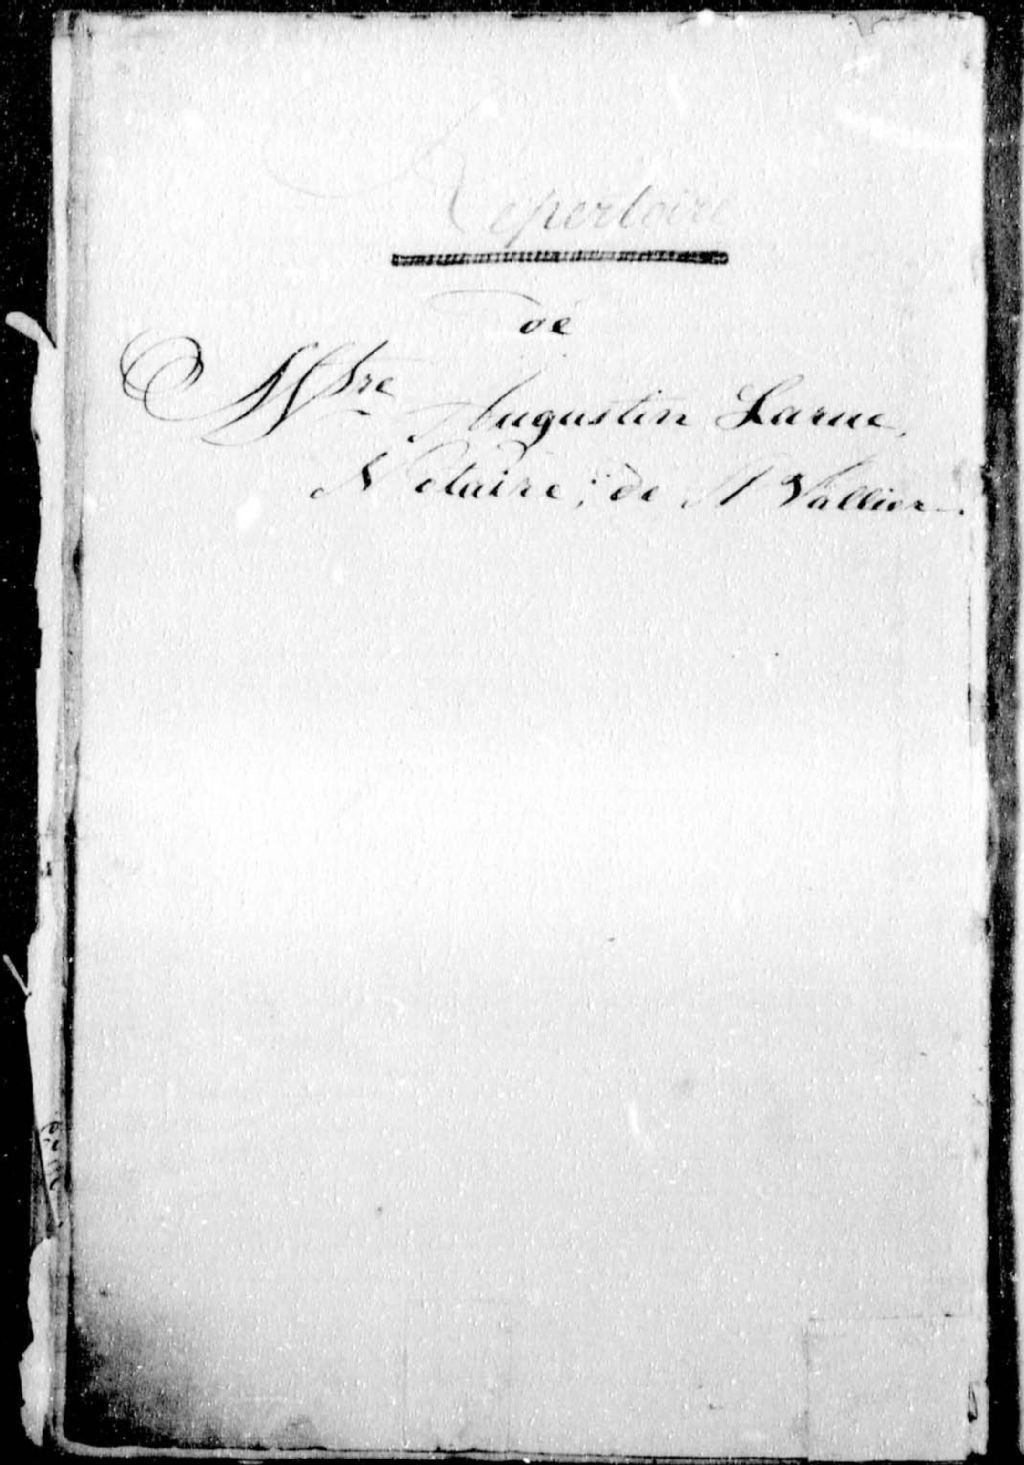 Repertoire
de
Mtre Augustin Larue,
Notaire, de St Vallier.